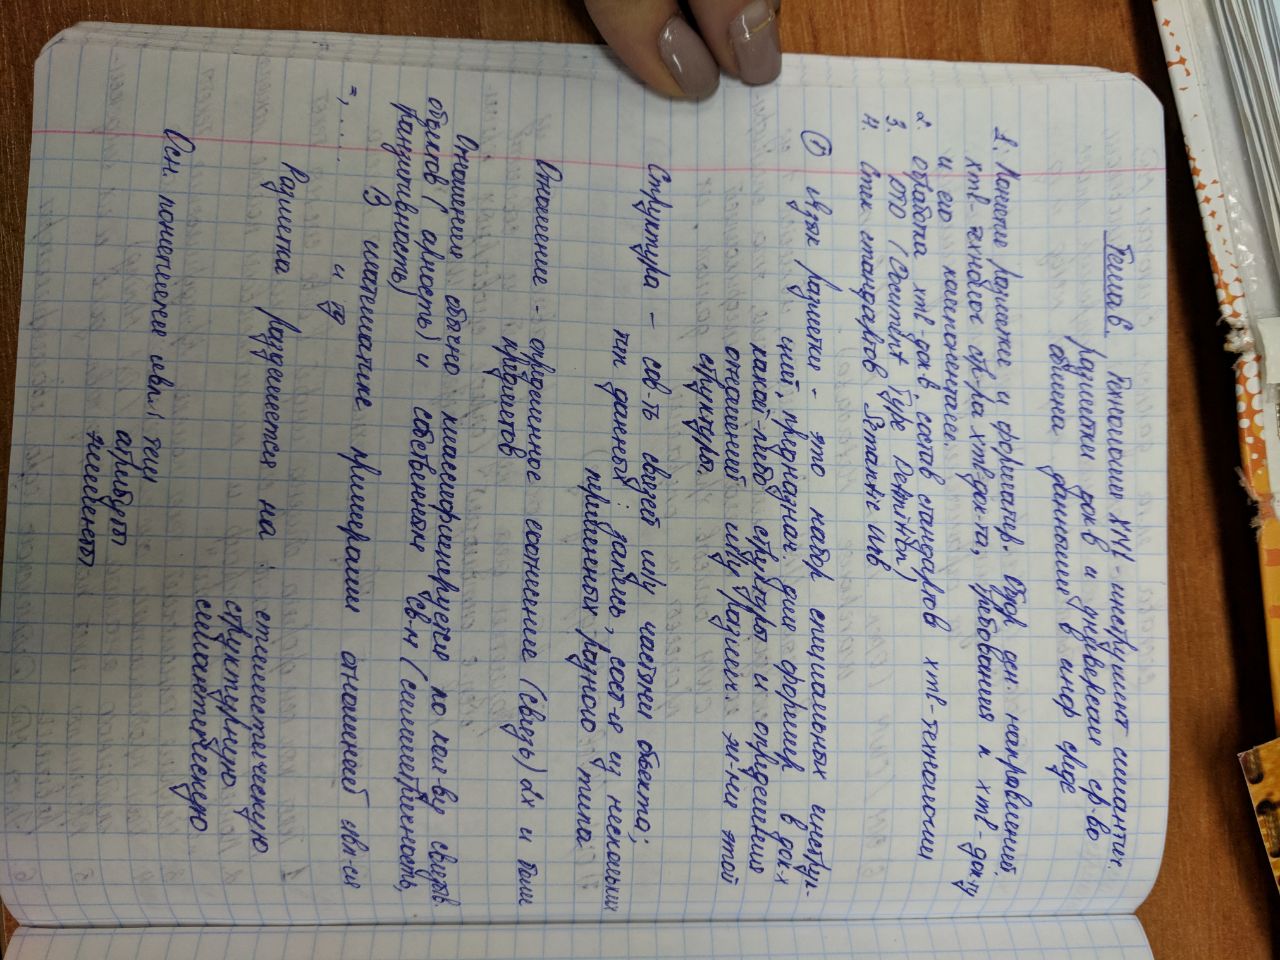 Тема 6. Технология XML - инструмент семантич.
разметки док-в и универсал. ср-во
обмена данными в инф. среде
1. Понятие разметки и форматир. Опред. ден. направлений
xml-технолог. стр-ра xml док-та, требования к xml-док-ту
и его компонентам.
2. обработка xml-док-в, состав стандартов xml-технологии
3. DTD (Document Type Definition)
4. Стек стандартов
① Язык разметки - это набор специальных инструк-
ций, предназнач. для формир. в док-х
какой-либо структуры и определения
отношений м/у различн. эл-ми этой
структуры.
Структура - сов-ть связей м/у частями объекта;
тип данных; запись, сост-я из нескольких
переменных разного типа
Отношение - определенное соотнение (связь) 2х и более
предметов
Отношения обычно классифицируется по кол-ву связыв.
объектов (арность) и собственным св-м (симметричность,
транзитивность)
В математике примерами отношений явл-ся
=, .... и ∈
Разметка разделяется на: стилистическую
структурную
семантическую
Осн. понятиями явл.: теги
атрибут
элемент